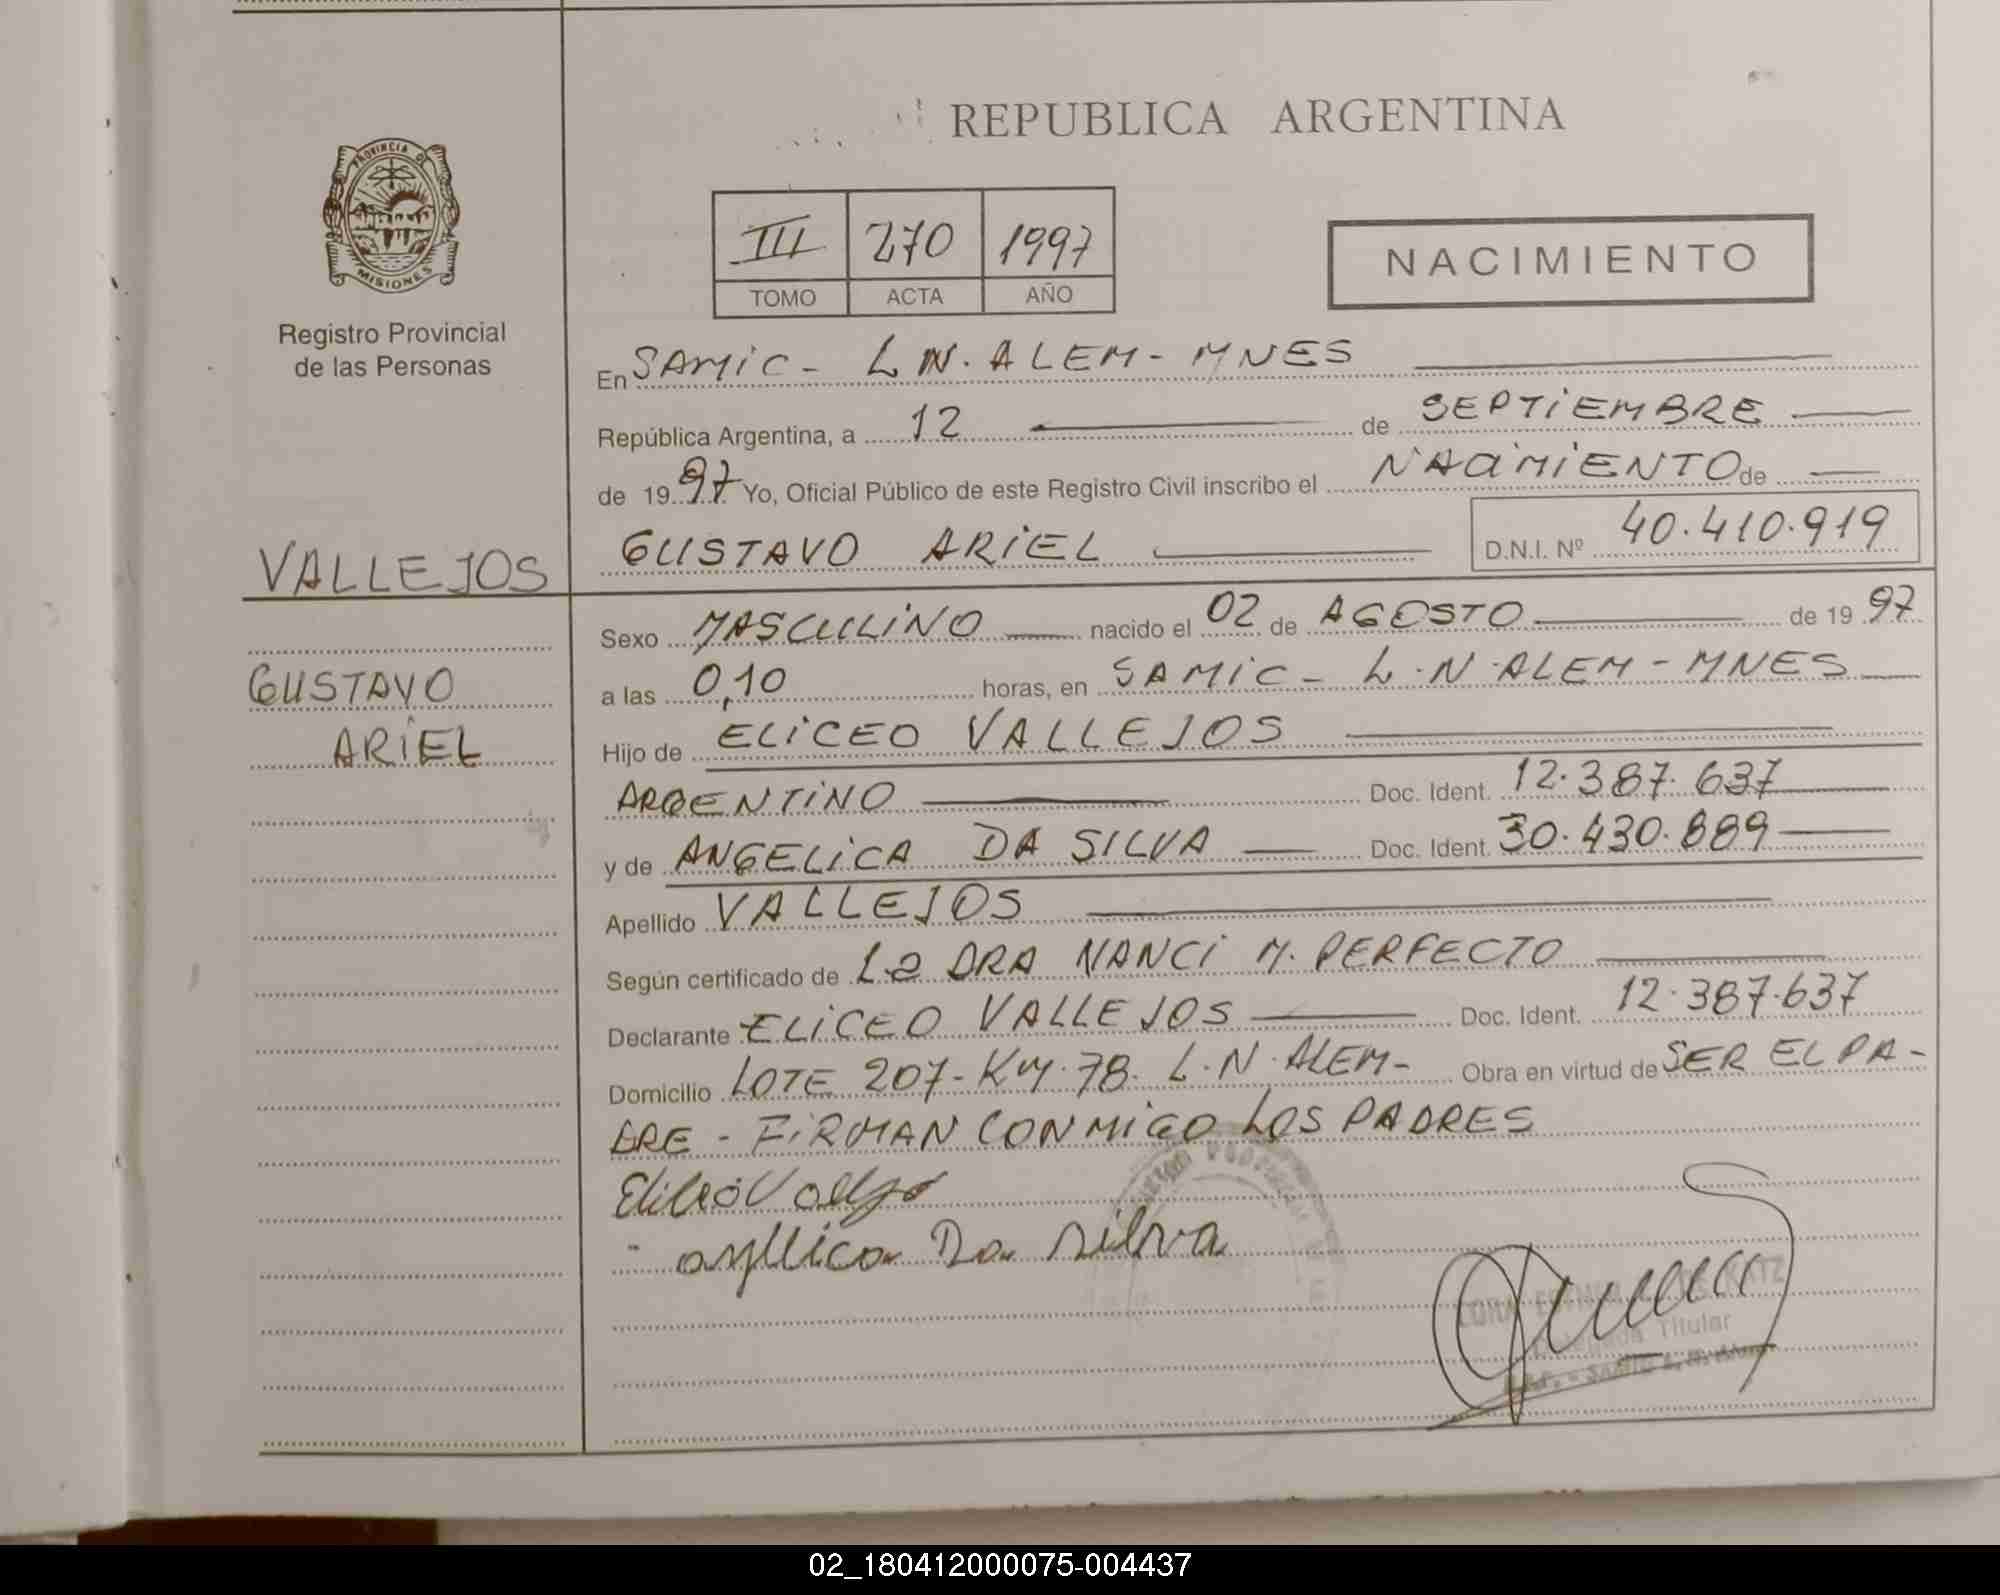 PROVINCIA DE
MISIONES
Registro Provincial
de las Personas
VALLEJOS
GUSTAVO
ARIEL
REPUBLICA ARGENTINA
III 270 1997
TOMO ACTA AÑO
NACIMIENTO
En SAMIC - L N. ALEM - MNES
República Argentina, a 12 de SEPTIEMBRE
de 1997 Yo, Oficial Público de este Registro Civil inscribo el NACIMIENTO de
GUSTAVO ARIEL D.N.I. Nº 40.410.919
Sexo MASCULINO nacido el 02 de AGOSTO de 1997
a las 0,10 horas, en SAMIC - L.N.ALEM - MNES
Hijo de ELICEO VALLEJOS
ARGENTINO Doc. Ident. 12.387.637
y de ANGELICA DA SILVA Doc. Ident. 30.430.889
Apellido VALLEJOS
Según certificado de La DRA NANCI M. PERFECTO
Declarante ELICEO VALLEJOS Doc. Ident. 12.387.637
Domicilio LOTE 207 - KM.78. L.N.ALEM - Obra en virtud de SER EL PA-
DRE - FIRMAN CONMIGO LOS PADRES
Da Silva
Titular
02_180412000075-004437